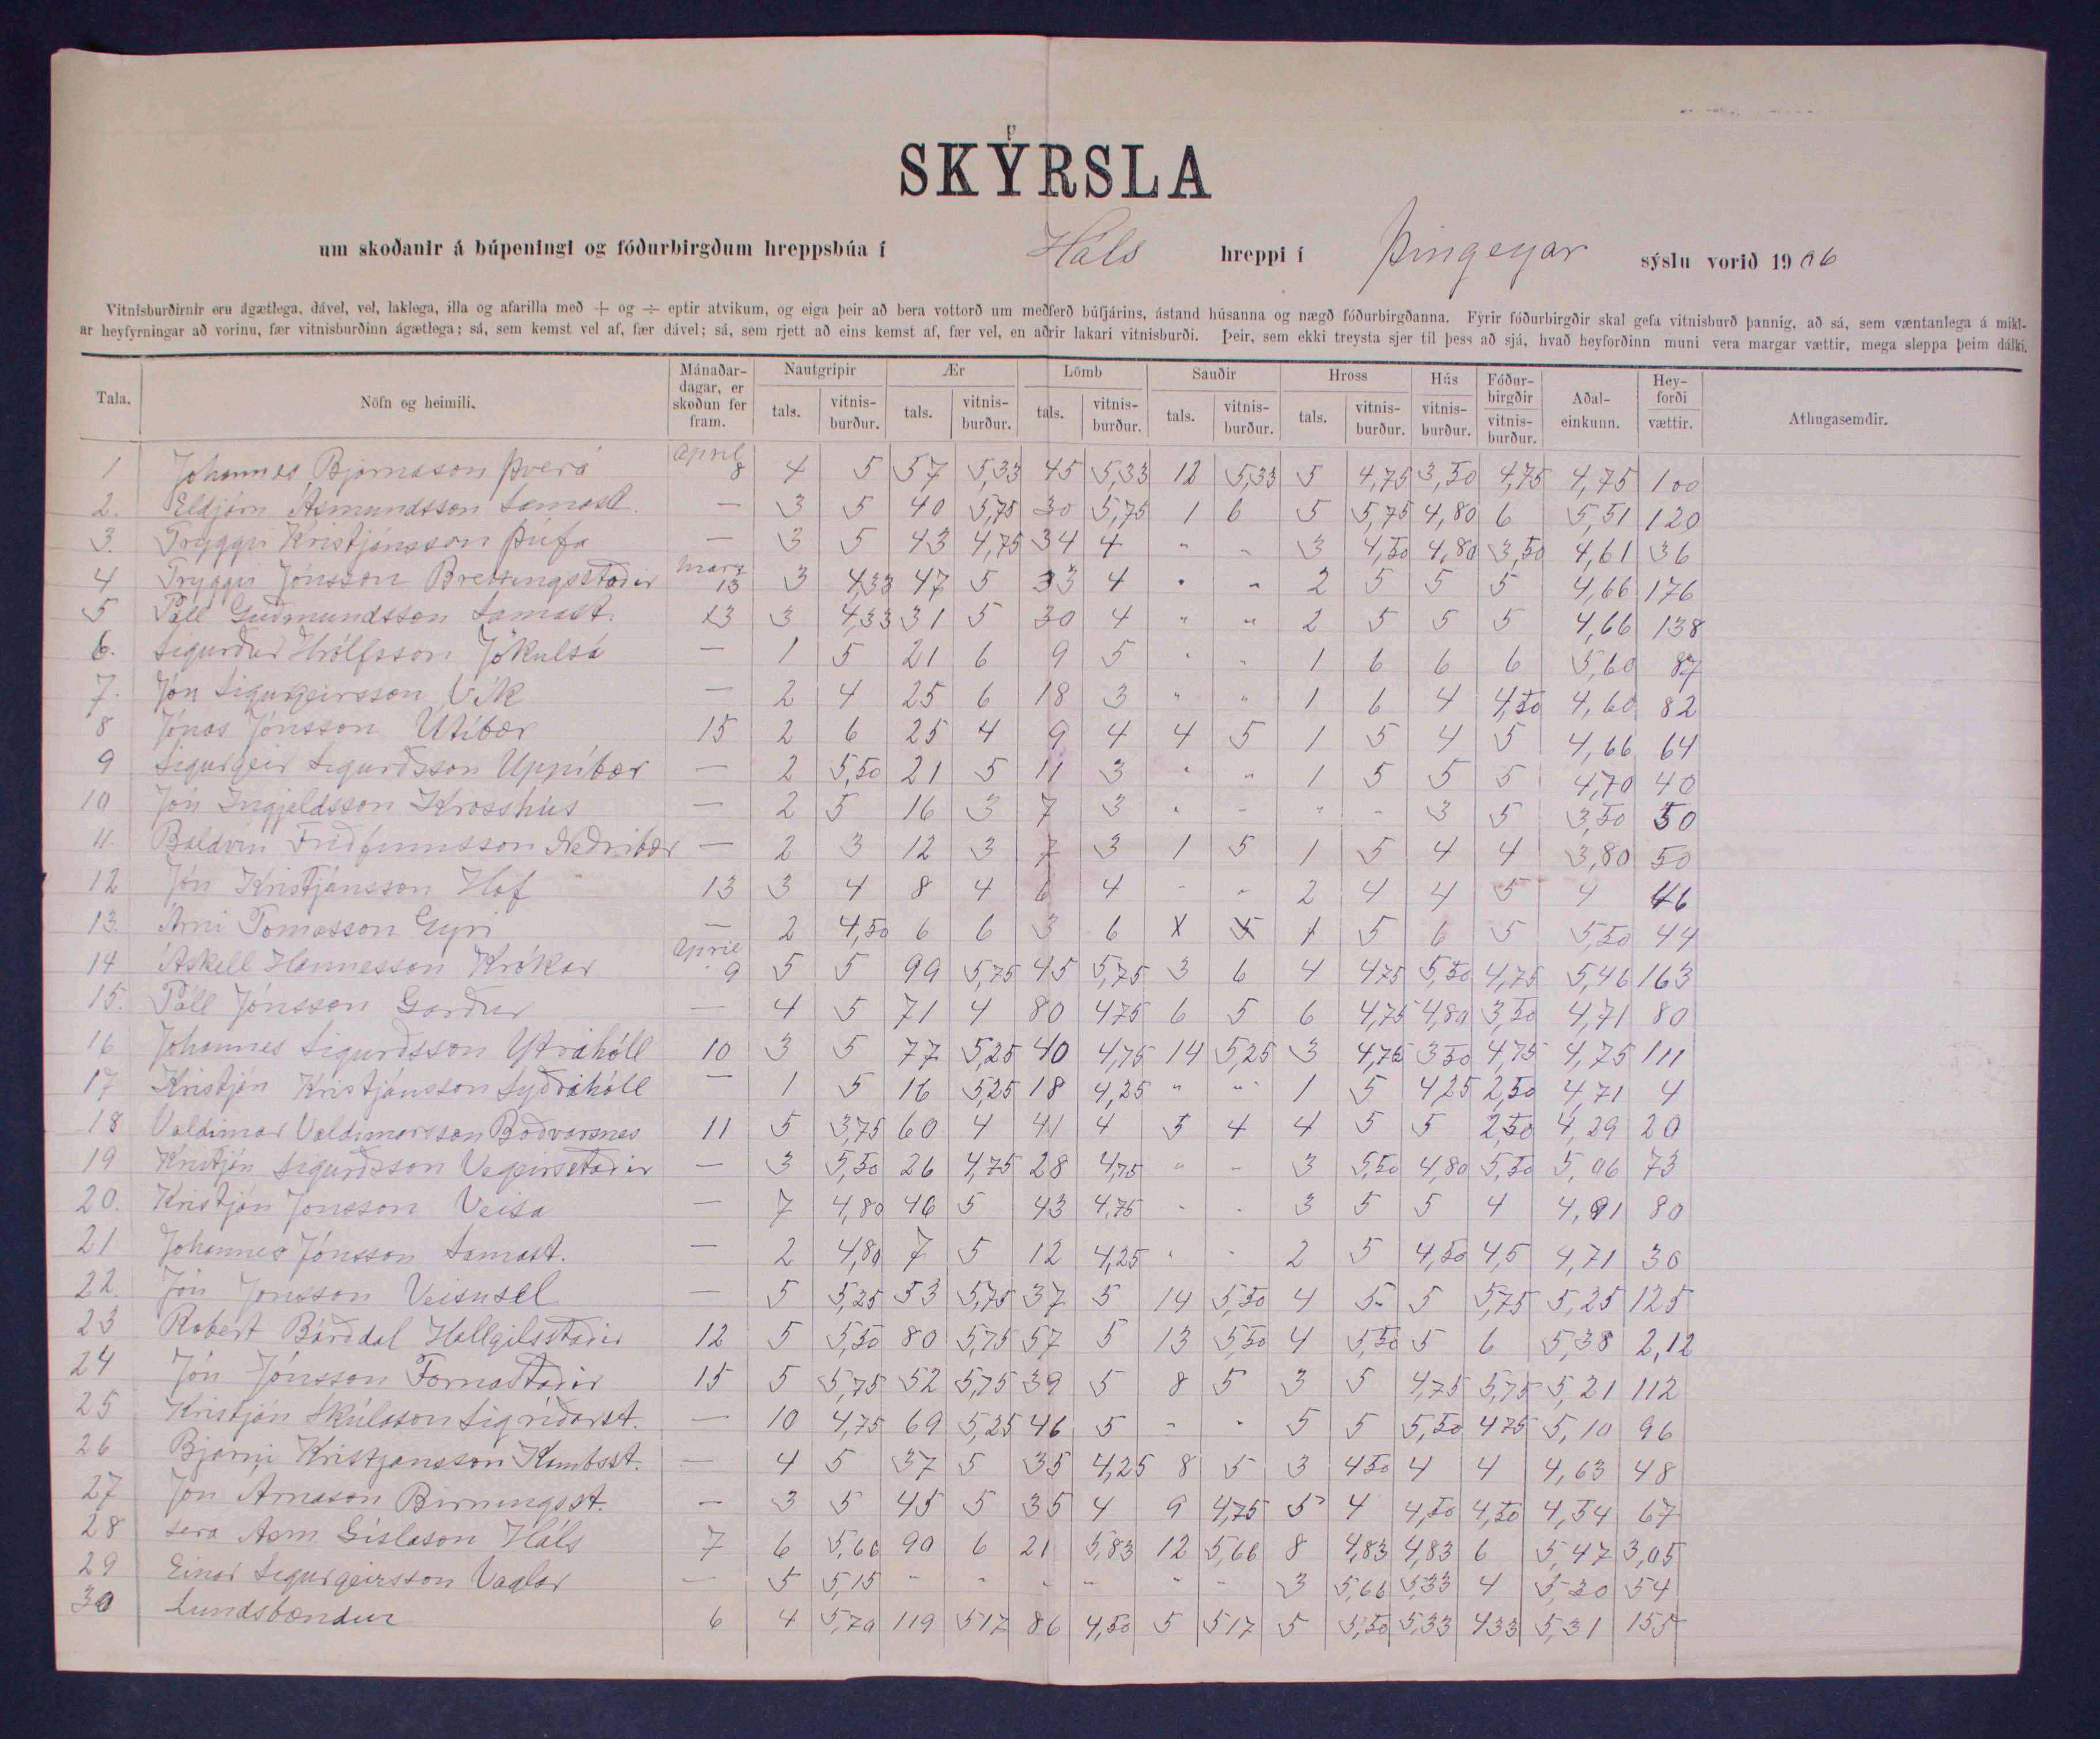 SKÝRSLA
um skoðanir á búpeningi og fóðurbirgðum hreppsbúa í Háls hreppi í Þingeyar sýslu vorið 1906
Vitnisburðirnir eru ágætlega, dável, vel, laklega, illa og afarilla með + og ÷ eptir atvikum, og eiga þeir að bera vottorð um meðferð búfjárins, ástand húsanna og nægð fóðurbirgðanna. Fyrir fóðurbirgðir skal gefa vitnisburð þannig, að sá, sem væntanlega á mikl-
ar heyfyrningar að vorinu, fær vitnisburðinn ágætlega; sá, sem kemst vel af, fær dável; sá, sem rjett að eins kemst af, fær vel, en aðrir lakari vitnisburði. Þeir, sem ekki treysta sjer til þess að sjá, hvað heyforðinn muni vera margar vættir, mega sleppa þeim dálki.
Tala. Nöfn og heimili. Mánaðar-dagar, er skoðun fer fram. Nautgripir tals. vitnis-burður. Ær tals. vitnis-burður. Lömb tals. vitnis-burður. Sauðir tals. vitnis-burður. Hross tals. vitnis-burður. Hús vitnis-burður. Fóður-birgðir vitnis-burður. Aðal-einkunn. Hey-forði vættir. Athugasemdir.
1 Johannes Bjarnason Þverá April 8 4 5 57 5,33 45 5,33 12 5,33 5 4,75 3,50 4,75 4,75 100
2. Eldjárn Ásmundsson samast. — 3 5 40 5,75 30 5,75 1 6 5 5,75 4,80 6 5,51 120
3. Tryggvi Kristjánsson Þúfa — 3 5 43 4,75 34 4 " " 3 4,50 4,80 3,50 4,61 36
4 Tryggvi Jónsson Brettingsstaðir Marz 13 3 4,33 47 5 33 4 " " 2 5 5 5 4,66 176
5 Páll Guðmundsson samast. 13 3 4,33 31 5 30 4 " " 2 5 5 5 4,66 138
6. Sigurður Hrólfsson Jökulsá — 1 5 21 6 9 5 " " 1 6 6 6 5,60 87
7. Jón Sigurgeirsson Vík — 2 4 25 6 18 3 " " 1 6 4 4,50 4,60 82
8 Jónas Jónsson Útibær 15 2 6 25 4 9 4 4 5 1 5 4 5 4,66 64
9 Sigurgeir Sigurðsson Uppíbær — 2 5,50 21 5 11 3 " " 1 5 5 5 4,70 40
10 Jón Ingjaldsson Krosshús — 2 5 16 3 7 3 " " " " 3 5 3,50 50
11. Baldvin Friðfinnsson Neðribær — 2 3 12 3 7 3 1 5 1 5 4 4 3,80 50
12 Jón Kristjánsson Hof 13 3 4 8 4 6 4 " " 2 4 4 5 4 46
13. Árni Tomasson Eyri — 2 4,50 6 6 3 6 1 5 1 5 6 5 5,50 44
14 Áskell Hannesson Krókar April 9 5 5 99 5,75 45 5,75 3 6 4 475 5,50 4,75 5,46 163
15. Páll Jónsson Garður — 4 5 71 4 80 475 6 5 6 4,75 4,80 3,50 4,71 80
16 Johannes Sigurðsson Ytrahóll 10 3 5 77 5,25 40 4,75 14 5,25 3 4,75 350 4,75 4,75 111
17 Kristján Kristjánsson Syðrahóll — 1 5 16 5,25 18 4,25 " " 1 5 425 2,50 4,71 4
18 Valdimar Valdimarsson Böðvarsnes 11 5 3,75 60 4 41 4 5 4 4 5 5 2,50 4,29 20
19 Kristján Sigurðsson Vegeirsstaðir — 3 5,50 26 4,75 28 4,75 " " 3 5,50 4,80 5,50 5,06 73
20. Kristján Jónsson Veisa — 7 4,80 46 5 43 4,75 " " 3 5 5 4 4,91 80
21 Johannes Jónsson samast. — 2 4,80 7 5 12 4,25 " " 2 5 4,50 4,5 4,71 30
22. Jón Jonsson Veisusel — 5 5,25 53 5,75 37 5 14 5,50 4 5 5 5,75 5,25 125
23 Robert Bárðdal Hallgilsstaðir 12 5 5,50 80 5,75 57 5 13 5,50 4 5,50 5 6 5,38 2,12
24 Jón Jónsson Fornastaðir 15 5 5,75 52 5,75 39 5 8 5 3 5 4,75 5,75 5,21 112
25 Kristján Skúlason Sigríðarst. — 10 4,75 69 5,25 46 5 " " 5 5 5,50 475 5,10 96
26 Bjarni Kristjansson Kambsst. — 4 5 37 5 35 4,25 8 5 3 450 4 4 4,63 48
27 Jón Arnason Birningsst. — 3 5 45 5 35 4 9 4,75 5 4 4,50 4,50 4,54 67
28 sera Asm. Gíslason Háls 7 6 5,66 90 6 21 5,83 12 5,66 8 4,83 4,83 6 5,47 3,05
29 Einar Sigurgeirsson Vaglar — 5 5,15 " " " " " " 3 5,66 5,33 4 5,30 54
30 Lundsbændur 6 4 5,70 119 517 86 4,50 5 517 5 5,50 5,33 433 5,31 155